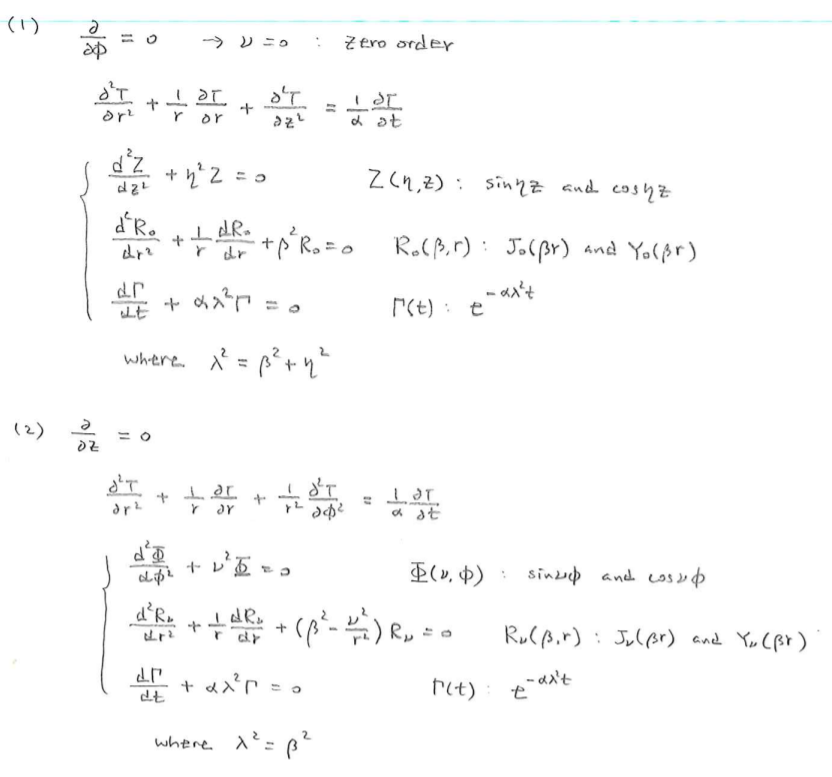 (1) ∂/∂ϕ = 0 → ν = 0 : zero order
∂²T/∂r² + 1/r ∂T/∂r + ∂²T/∂z² = 1/α ∂T/∂t
d²Z/dz² + η²Z = 0 Z(η,z) : sinηz and cosηz
d²R₀/dr² + 1/r dR₀/dr + β²R₀ = 0 R₀(β,r) : J₀(βr) and Y₀(βr)
dΓ/dt + αλ²Γ = 0 Γ(t) : e^(-αλ²t)
where λ² = β² + η²
(2) ∂/∂z = 0
∂²T/∂r² + 1/r ∂T/∂r + 1/r² ∂²T/∂ϕ² = 1/α ∂T/∂t
d²Φ/dϕ² + ν²Φ = 0 Φ(ν,ϕ) : sinνϕ and cosνϕ
d²Rν/dr² + 1/r dRν/dr + (β² - ν²/r²) Rν = 0 Rν(β,r) : Jν(βr) and Yν(βr)
dΓ/dt + αλ²Γ = 0 Γ(t) : e^(-αλ²t)
where λ² = β²